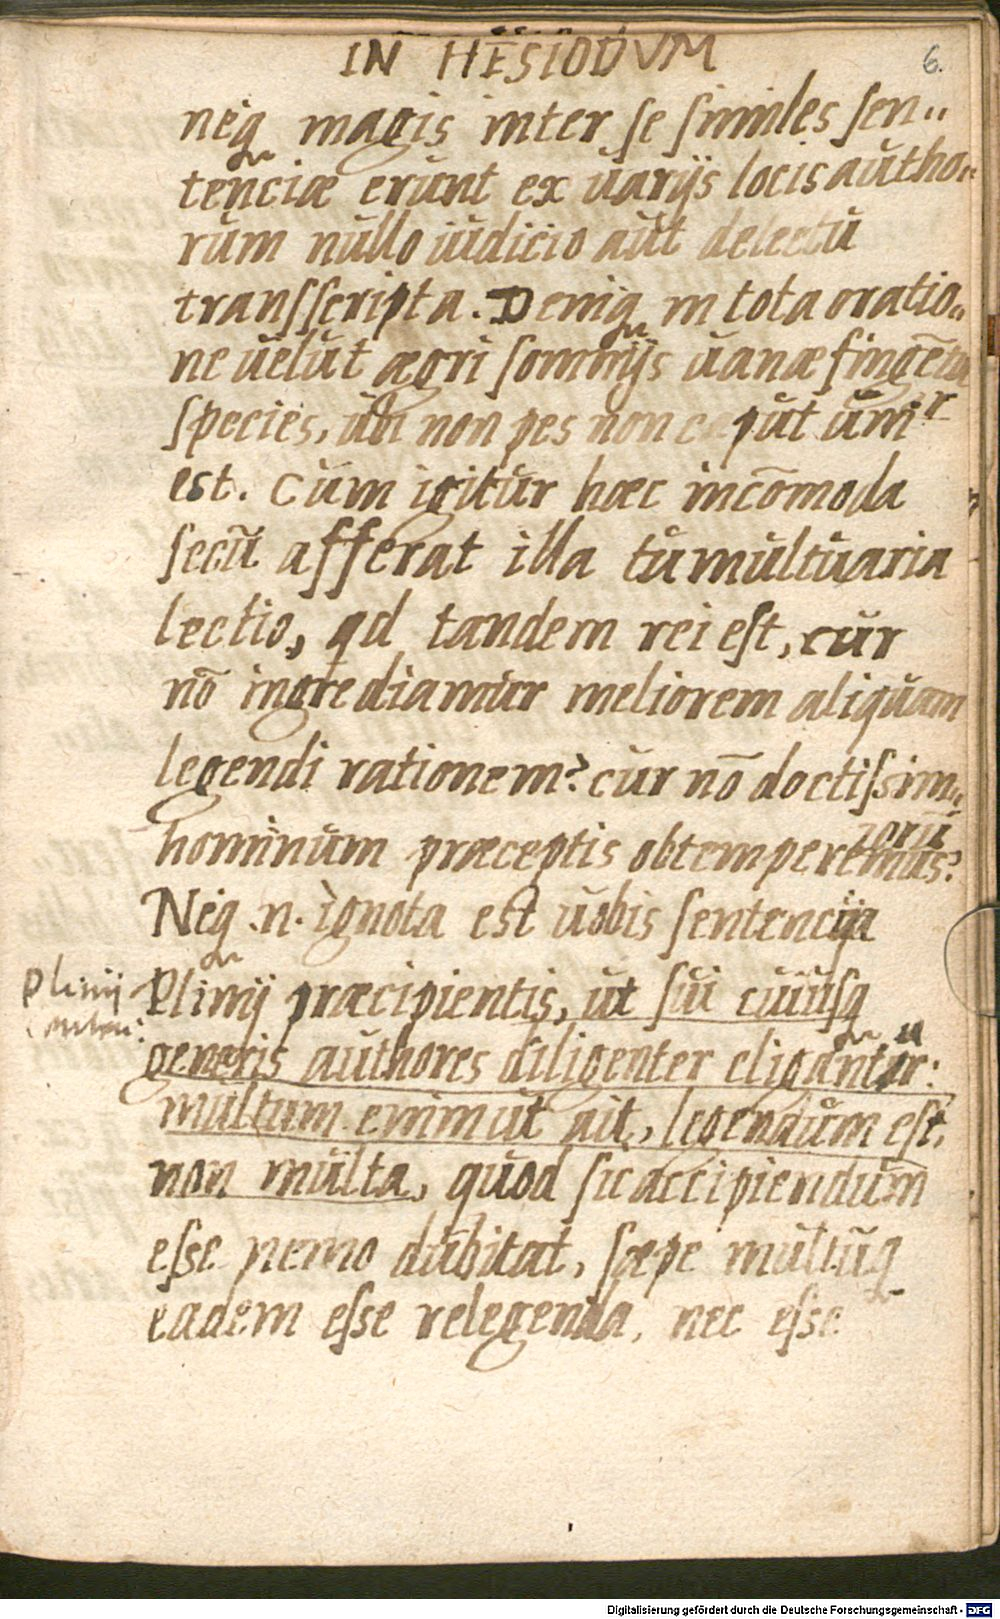 IN HESIODVM
6.
neq magis inter se similes sen„
tenciæ erunt ex uarijs locis autho„
rum nullo iudicio aut delectu
transscripta. Deniq in tota oratio„
ne uelut ægri somnijs uanæ fingẽtur
species, ubi non pes non caput uni
est. Cum igitur hæc incõmoda
secũ afferat illa tumultuaria
lectio, qd tandem rei est, cur
nõ ingrediamur meliorem aliquam
legendi rationem? cur nõ doctissim„
orũ
hominum præceptis obtemperemus?
Neq .n. ignota est uobis sentencia
Plinij
Plinij præcipientis, ut sui cuiusq
generis authores diligenter eligantur:
multum enim ut ait, legendum est,
non multa, quod sic accipiendum
esse nemo dubitat, sæpe multuq
eadem esse relegenda, nec esse
Digitalisierung gefördert durch die Deutsche Forschungsgemeinschaft - DFG